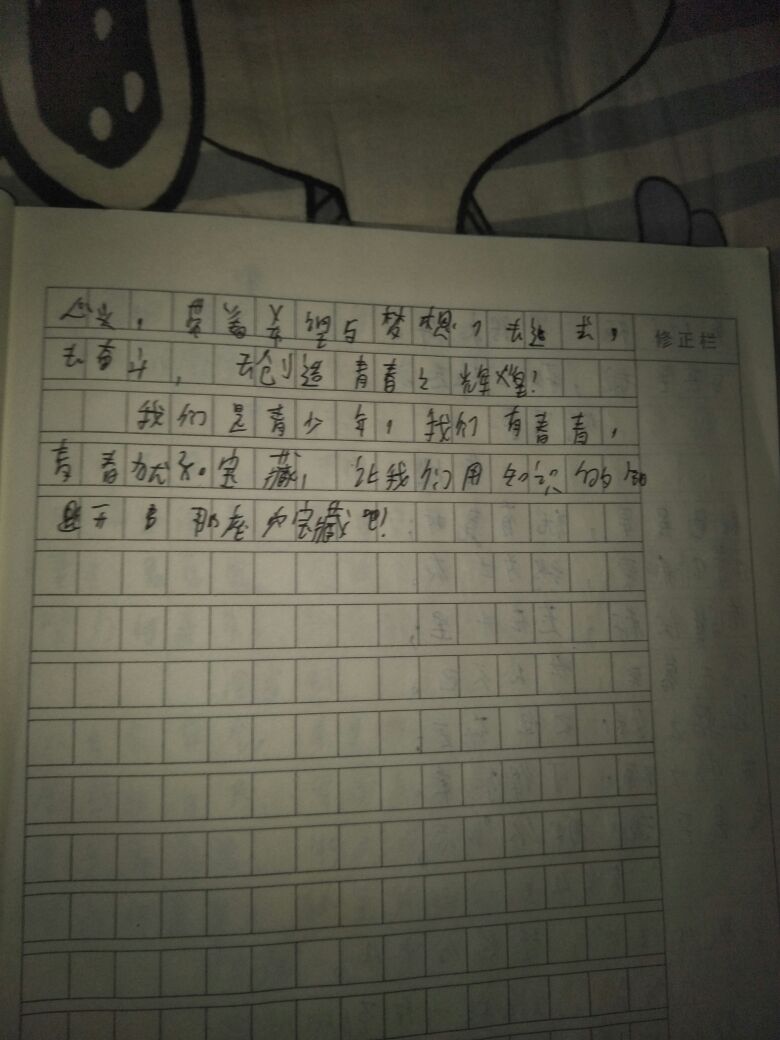 心灵，带着希望与梦想，去追求，修正栏
去奋斗，去创造青春之辉煌！
我们是青少年，我们有青春，
青春犹如宝藏，让我们用知识的钥
匙开启那座宝藏吧！